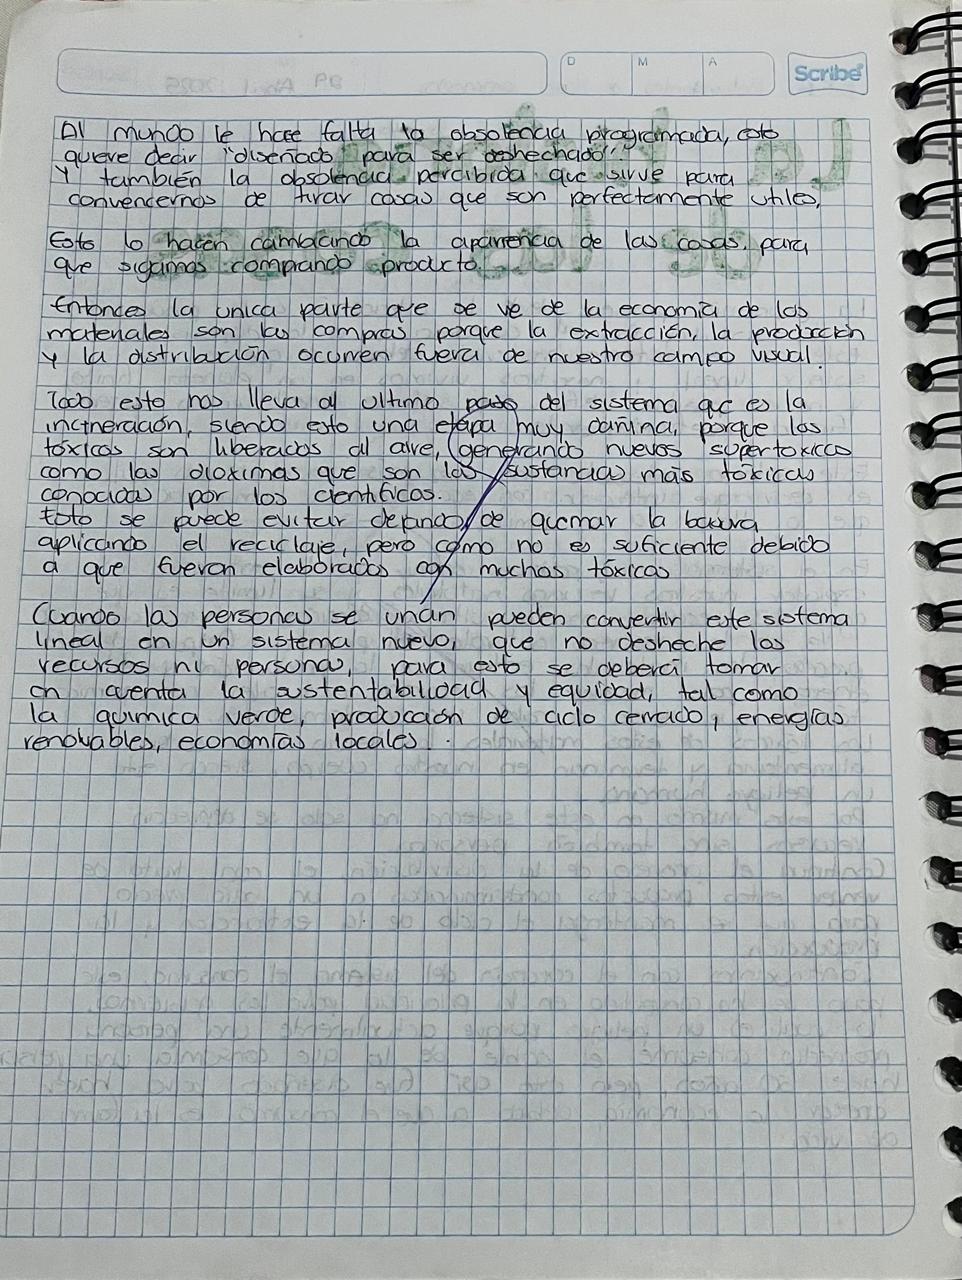 D M A Scribe
Al mundo le hace falta la obsolencia programada, esto
quieve decir "diseñado para ser deshechado".
Y también la obsolencia percibida que sirve para
convencernos de tirar cosas que son perfectamente utiles,
Esto lo hacen cambiando la apariencia de las cosas, para
que sigamos comprando producto.
Entonces la unica parte que se ve de la economía de los
materiales son las compras porque la extracción, la producción
y la distribución ocurren fuera de nuestro campo visual.
Todo esto nos lleva al ultimo paso del sistema que es la
incineración, siendo esto una etapa muy dañina, porque los
tóxicos son liberados al aire, generando nuevos supertoxicos
como las dioximas que son las sustancias más tóxicas
conocidas por los científicos.
Esto se puede evitar dejando de quemar la basura
aplicando el reciclaje, pero como no es suficiente debido
a que fueron elaborados con muchos tóxicos
Cuando las personas se unan pueden convertir este sistema
lineal en un sistema nuevo, que no desheche los
recursos ni persona, para esto se deberá tomar
en cuenta la sustentabilidad y equidad, tal como
la química verde, producción de ciclo cerrado, energías
renovables, economías locales.